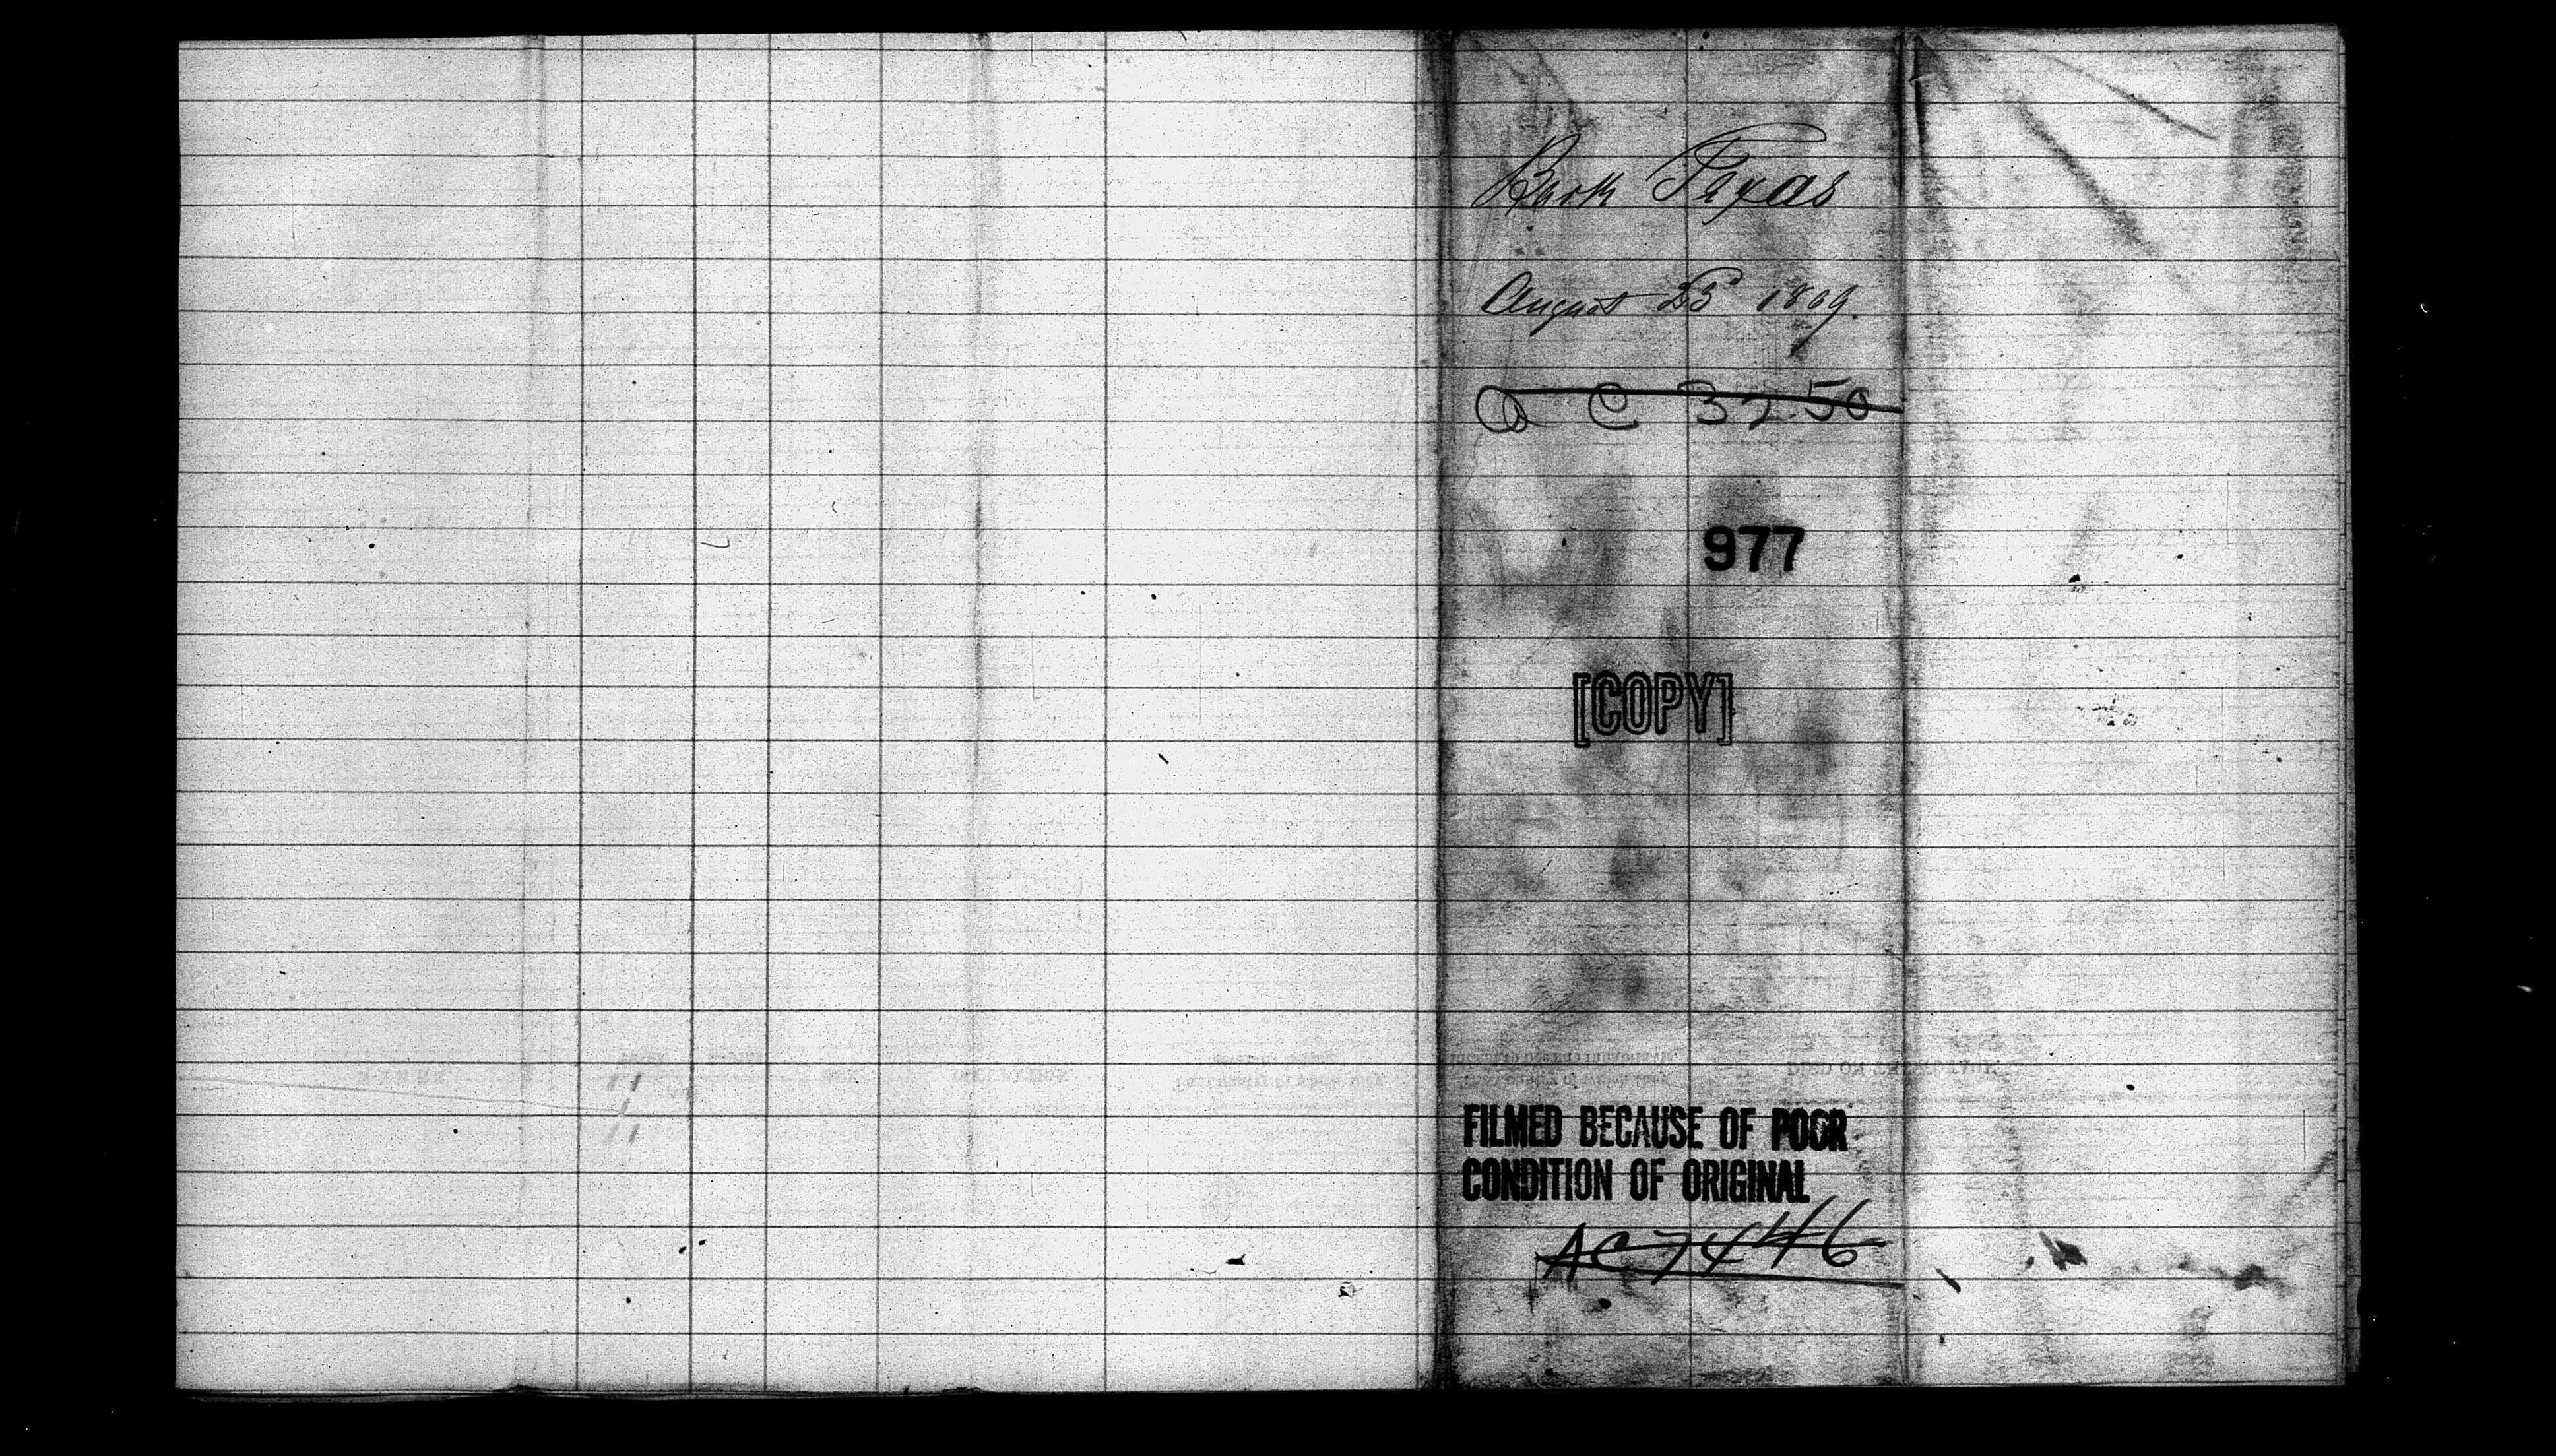 Bark Texas
August 25 1869.
A C 3250
977
[COPY]
FILMED BECAUSE OF POOR
CONDITION OF ORIGINAL
AC 7446